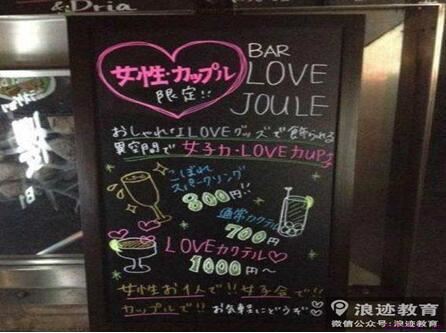 & Dria
女性・カップル
限定!!
BAR
LOVE
JOULE
おしゃれなLOVEグッズで飾られる
異空間で 女子力・LOVE力UP
こぼれ
スパークリング
800円!!
通常カクテル
700円
LOVEカクテル♡
1000円～
女性お1人で!! 女子会で!!
カップルで!! お気軽にどうぞ♡
浪迹教育
微信公众号: 浪迹教育